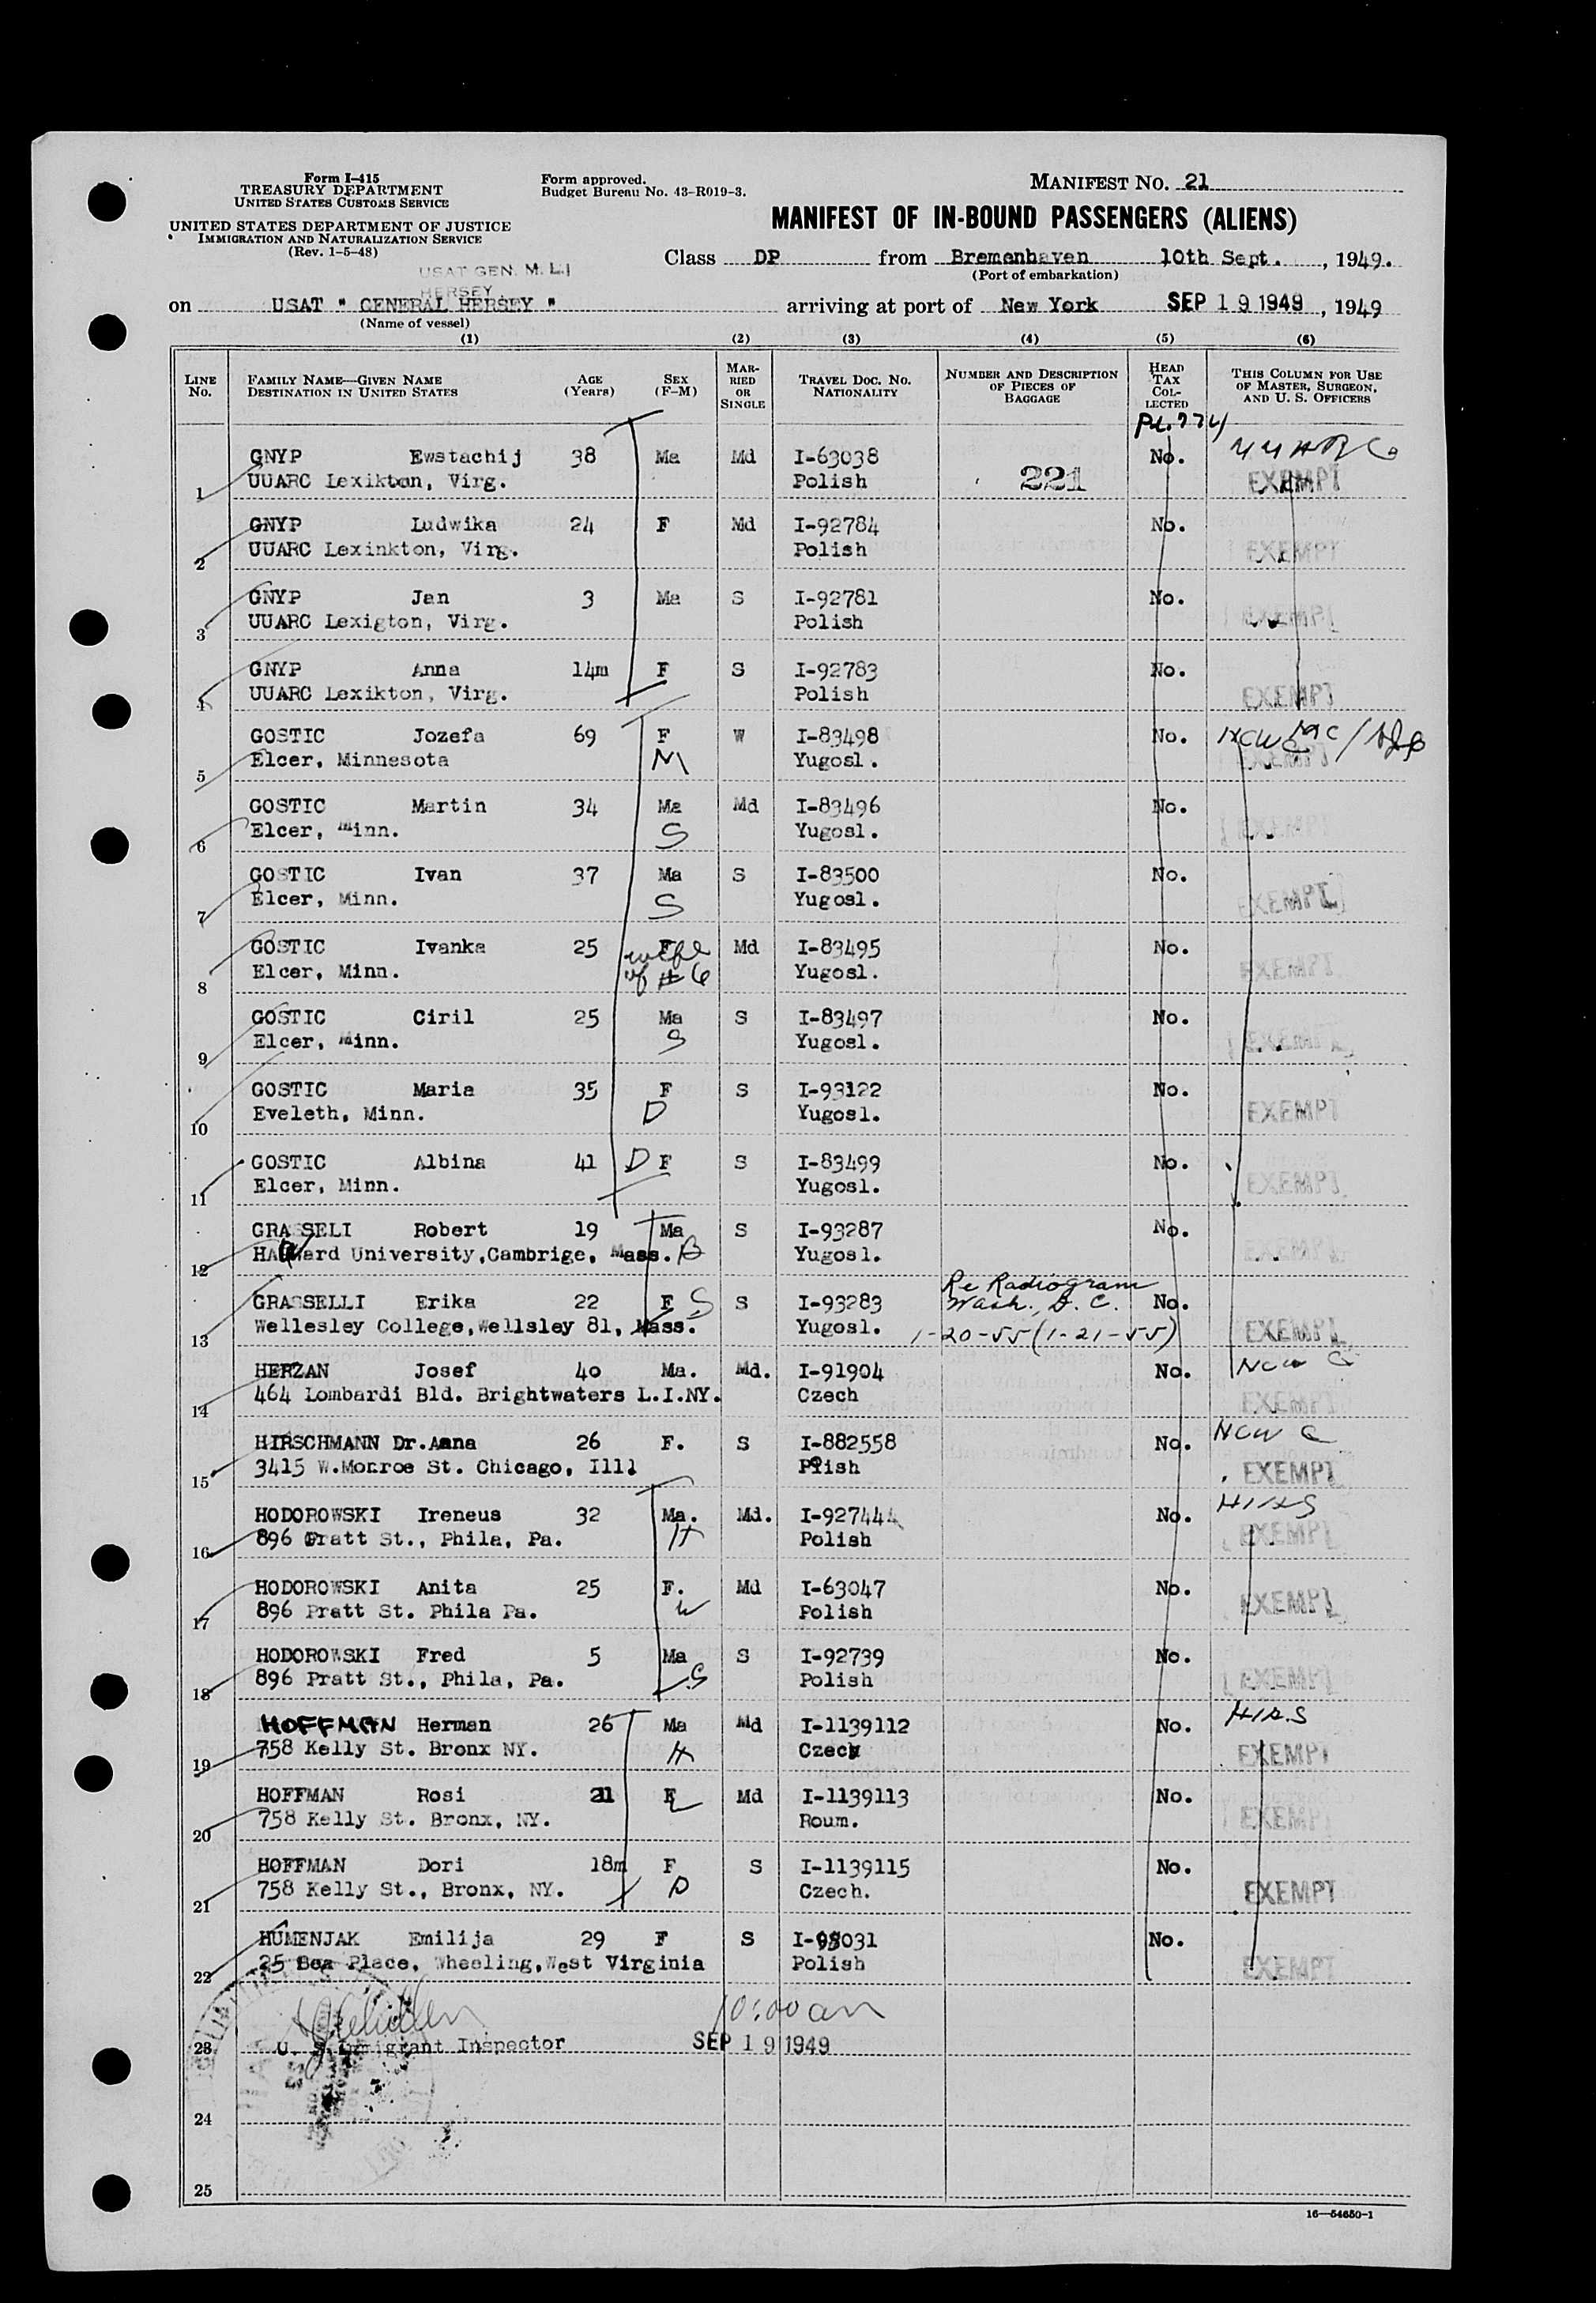 Form I-415
TREASURY DEPARTMENT
UNITED STATES CUSTOMS SERVICE
UNITED STATES DEPARTMENT OF JUSTICE
IMMIGRATION AND NATURALIZATION SERVICE
(Rev. 1-5-48)
Form approved.
Budget Bureau No. 43-R019-3.
MANIFEST No. 21
MANIFEST OF IN-BOUND PASSENGERS (ALIENS)
Class DP from Bremenhaven 10th Sept. , 1949.
(Port of embarkation)
USAT GEN. M. L.
HERSEY
on USAT " GENERAL HERSEY " arriving at port of New York SEP 19 1949 , 1949
(Name of vessel)
(1) (2) (3) (4) (5) (6)
LINE No. FAMILY NAME—GIVEN NAME DESTINATION IN UNITED STATES AGE (Years) SEX (F-M) MARRIED OR SINGLE TRAVEL DOC. No. NATIONALITY NUMBER AND DESCRIPTION OF PIECES OF BAGGAGE HEAD TAX COLLECTED THIS COLUMN FOR USE OF MASTER, SURGEON, AND U. S. OFFICERS
GNYP Ewstachij 38 Ma Md I-63038 No.
1 UUARC Lexikton, Virg. Polish 221 EXEMPT
GNYP Ludwika 24 F Md I-92784 No.
2 UUARC Lexinkton, Virg. Polish EXEMPT
GNYP Jan 3 Ma S I-92781 No.
3 UUARC Lexigton, Virg. Polish EXEMPT
GNYP Anna 14m F S I-92783 No.
4 UUARC Lexikton, Virg. Polish EXEMPT
GOSTIC Jozefa 69 F W I-83498 No.
5 Elcer, Minnesota M Yugosl. EXEMPT
GOSTIC Martin 34 Ma Md I-83496 No.
6 Elcer, Minn. S Yugosl. EXEMPT
GOSTIC Ivan 37 Ma S I-83500 No.
7 Elcer, Minn. S Yugosl. EXEMPT
GOSTIC Ivanka 25 F wife Md I-83495 No.
8 Elcer, Minn. of # 6 Yugosl. EXEMPT
GOSTIC Ciril 25 Ma S I-83497 No.
9 Elcer, Minn. S Yugosl. EXEMPT
GOSTIC Maria 35 F S I-93122 No.
10 Eveleth, Minn. D Yugosl. EXEMPT
GOSTIC Albina 41 D F S I-83499 No.
11 Elcer, Minn. Yugosl. EXEMPT
GRASSELI Robert 19 Ma S I-93287 No.
12 HARward University,Cambrige, Mass. B Yugosl. EXEMPT
Re Radiogram
GRASSELLI Erika 22 F S S I-93283 Wash., D. C. No.
13 Wellesley College,Wellsley 81, Mass. Yugosl. 1-20-55 (1-21-55) EXEMPT
HERZAN Josef 40 Ma. Md. I-91904 No. NCW C
14 464 Lombardi Bld. Brightwaters L.I.NY. Czech EXEMPT
HIRSCHMANN Dr.Anna 26 F. S I-882558 No. NCW C
15 3415 W.Monroe St. Chicago, Illl Plish EXEMPT
HODOROWSKI Ireneus 32 Ma. Md. I-927444 No. HIAS
16 896 Pratt St., Phila, Pa. H Polish EXEMPT
HODOROWSKI Anita 25 F. Md I-63047 No.
17 896 Pratt St. Phila Pa. W Polish EXEMPT
HODOROWSKI Fred 5 Ma S I-92739 No.
18 896 Pratt St., Phila, Pa. S Polish EXEMPT
HOFFMAN Herman 26 Ma Md I-1139112 No. HIAS
19 758 Kelly St. Bronx NY. H Czech EXEMPT
HOFFMAN Rosi 21 F Md I-1139113 No.
20 758 Kelly St. Bronx, NY. Roum. EXEMPT
HOFFMAN Dori 18m F S I-1139115 No.
21 758 Kelly St., Bronx, NY. D Czech. EXEMPT
HUMENJAK Emilija 29 F S No.
22 25 Place, Wheeling,West Virginia Polish EXEMPT
10:00 am
23 U. S. Immigrant Inspector SEP 19 1949
24
25
16—54650-1